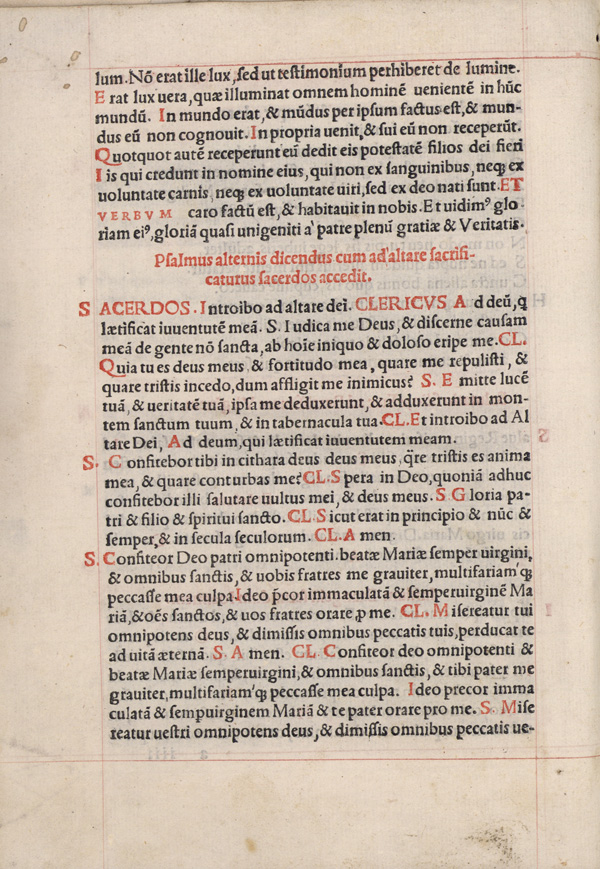 lum. Nõ erat ille lux, sed ut testimonium perhiberet de lumine.
Erat lux uera, quæ illuminat omnem hominẽ uenientẽ in hũc
mundũ. In mundo erat, & mũdus per ipsum factus est, & mun-
dus eũ non cognouit. In propria uenit, & sui eũ non receperũt.
Quotquot autẽ receperunt eũ dedit eis potestatẽ filios dei fieri
Iis qui credunt in nomine eius, qui non ex sanguinibus, neqꝫ ex
uoluntate carnis, neqꝫ ex uoluntate uiri, sed ex deo nati sunt. ET
VERBVM caro factũ est, & habitauit in nobis. Et uidimꝰ glo-
riam eiꝰ, gloriã quasi unigeniti a' patre plenũ gratiæ & Veritatis.
Psalmus alternis dicendus cum ad'altare sacrifi-
caturus sacerdos accedit.
SACERDOS. Introibo ad altare dei. CLERICVS Ad deũ, q
lætificat iuuentutẽ meã. S. Iudica me Deus, & discerne causam
meã de gente nõ sancta, ab hoĩe iniquo & doloso eripe me. CL.
Quia tu es deus meus & fortitudo mea, quare me repulisti, &
quare tristis incedo, dum affligit me inimicus? S. Emitte lucẽ
tuã, & ueritatẽ tuã, ipsa me deduxerunt, & adduxerunt in mon-
tem sanctum tuum, & in tabernacula tua. CL. Et introibo ad Al
tare Dei, Ad deum, qui lætificat iuuentutem meam.
S. Confitebor tibi in cithara deus deus meus, q̃re tristis es anima
mea, & quare conturbas me? CL. Spera in Deo, quoniã adhuc
confitebor illi salutare uultus mei, & deus meus. S Gloria pa-
tri & filio & spiritui sancto. CL. Sicut erat in principio & nũc &
semper, & in secula seculorum. CL. Amen.
S. Confiteor Deo patri omnipotenti. beatæ Mariæ semper uirgini,
& omnibus sanctis, & uobis fratres me grauiter, multifariam'qꝫ
peccasse mea culpa. Ideo p̃cor immaculatã & semperuirginẽ Ma
riã, & oẽs sanctos, & uos fratres orare, ꝓ me. CL. Misereatur tui
omnipotens deus, & dimissis omnibus peccatis tuis, perducat te
ad uitã æternã. S. Amen. CL. Confiteor deo omnipotenti &
beatæ Mariæ semperuirgini, & omnibus sanctis, & tibi pater me
grauiter, multifariam'qꝫ peccasse mea culpa. Ideo precor imma
culatã & sempuirginem Mariã & te pater orare pro me. S. Mise
reatur uestri omnipotens deus, & dimissis omnibus peccatis ue-